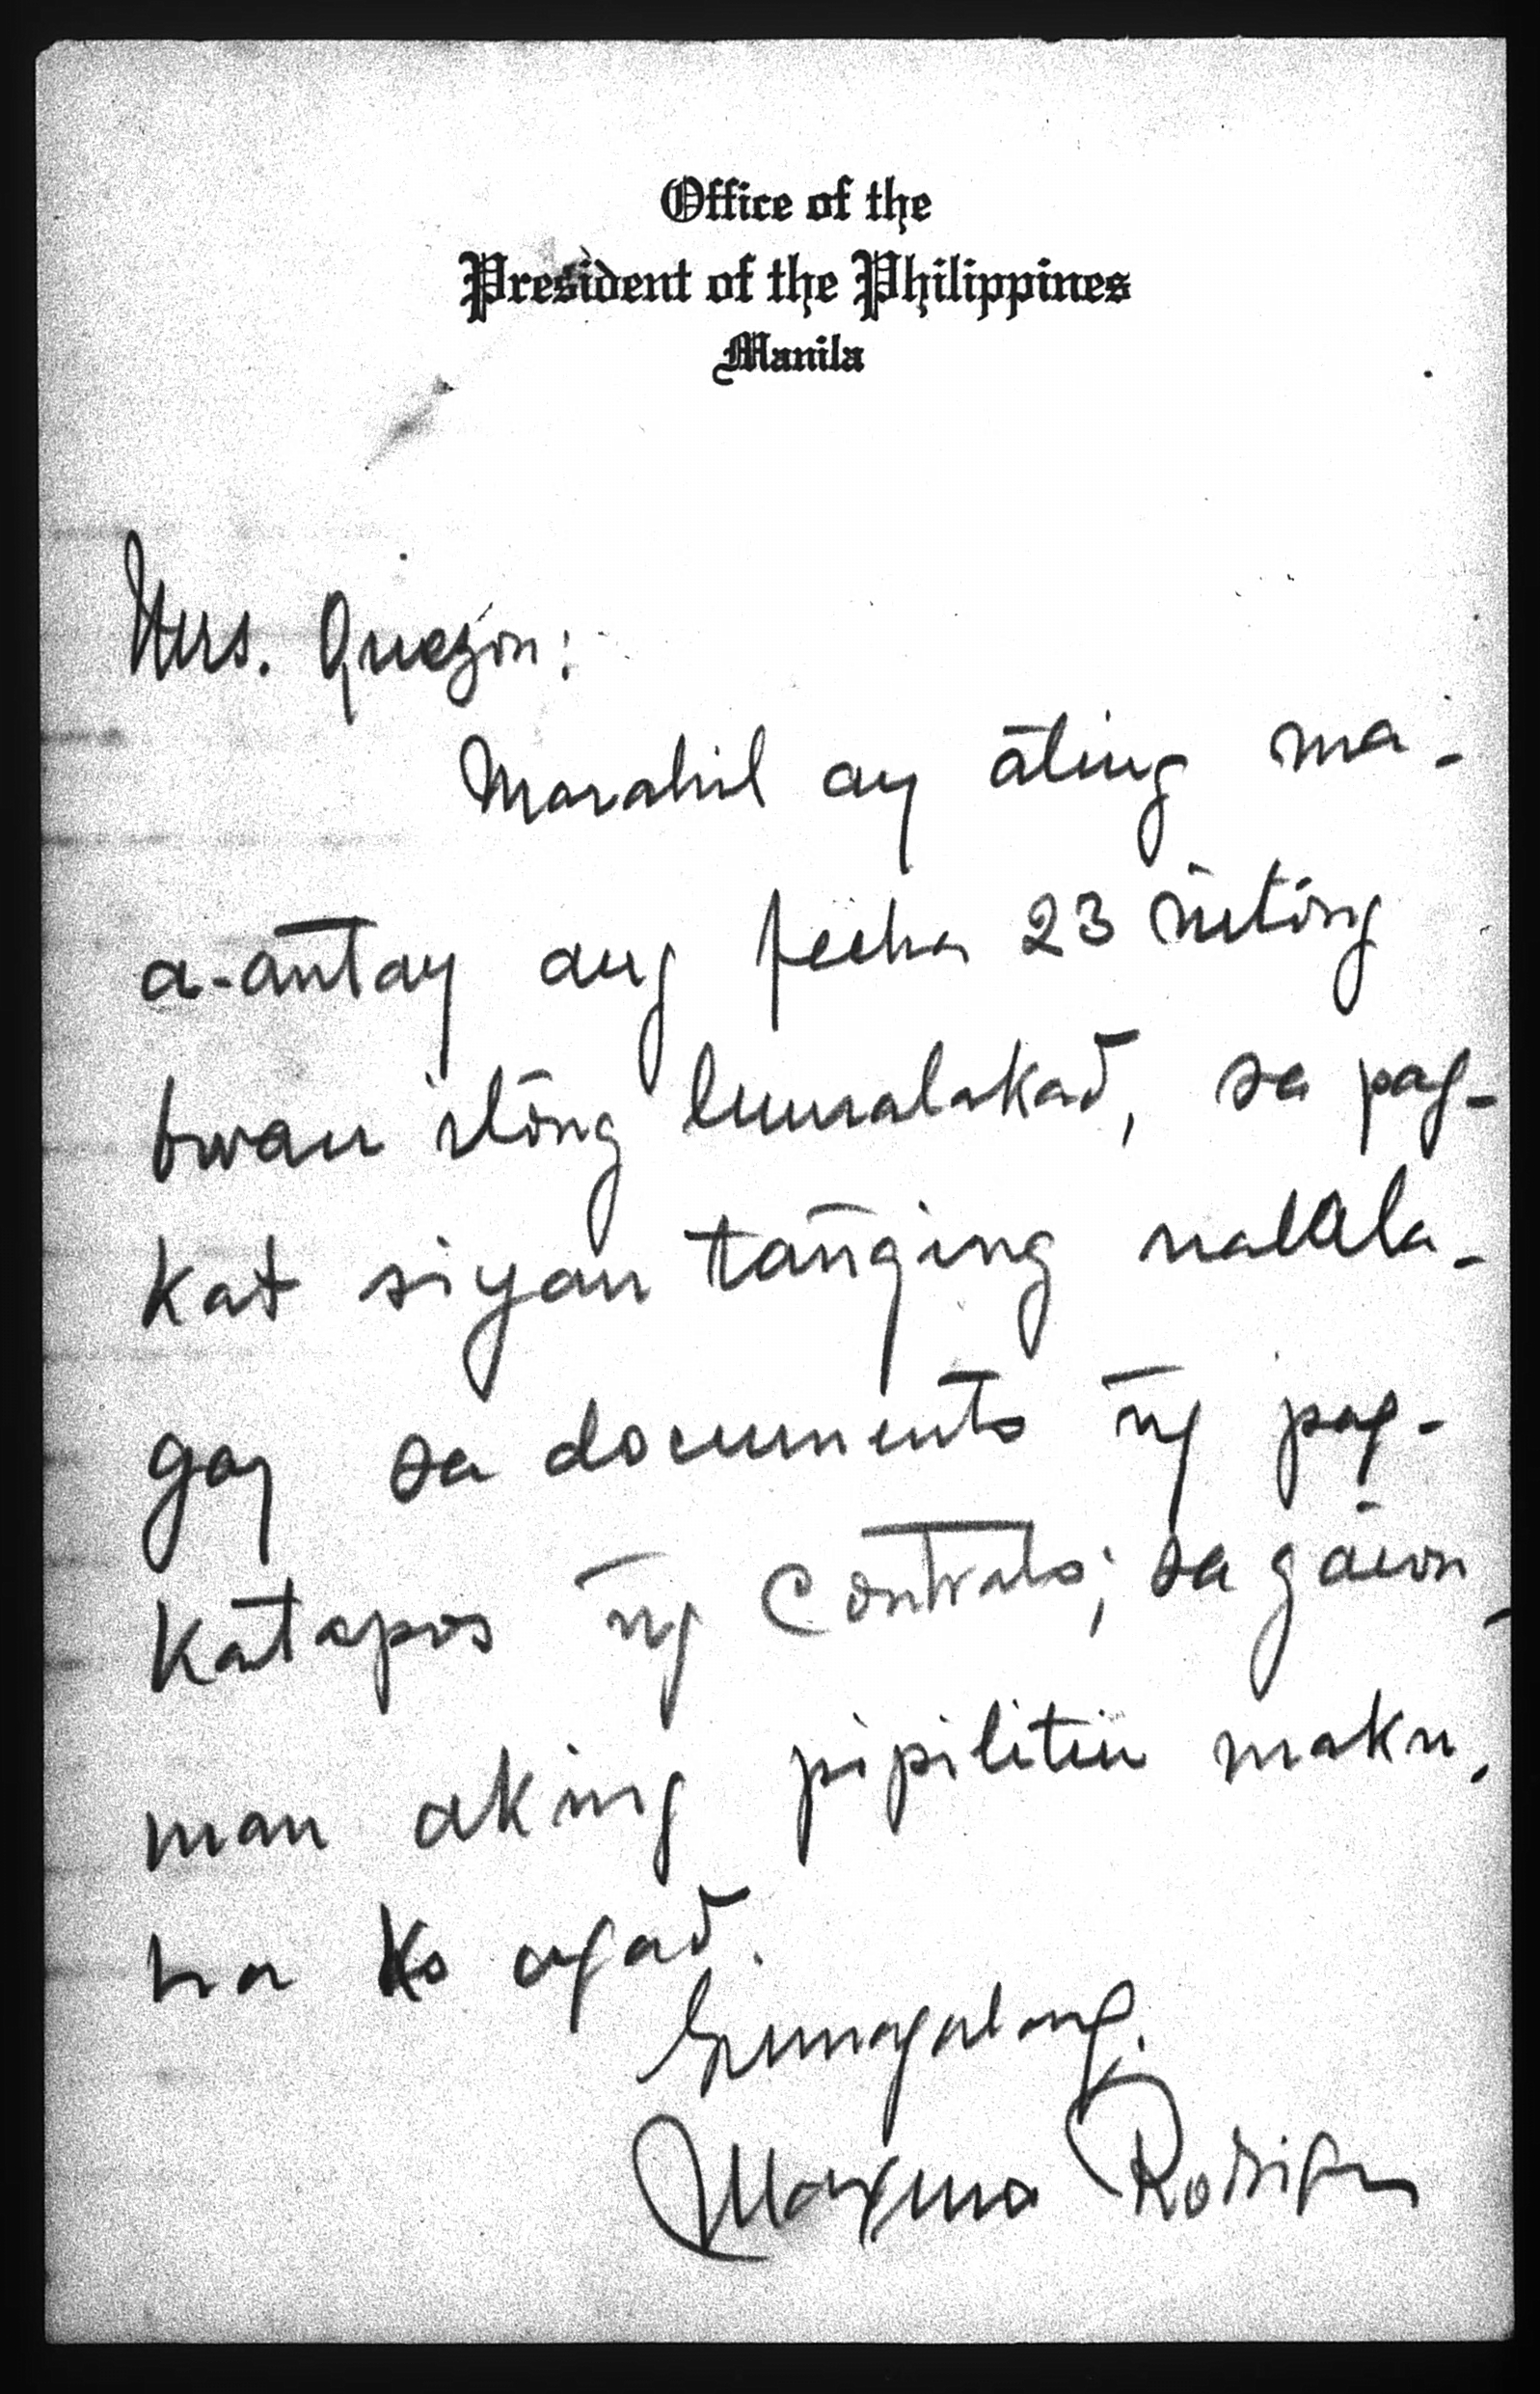 Office of the
President of the Philippines
Manila
Mrs. Quezon:
Marahil ay āting ma-
a-antay ang fecha 23 nitóng
bwan itóng lumalakad, sa pag-
kat siyan tañging nalala-
gay sa documento ñg pag-
katapos ñg contrato; sa gäwon
man aking pipilitin maku-
ha ko agad.
Gumagalang,
Maxima Rodrigu